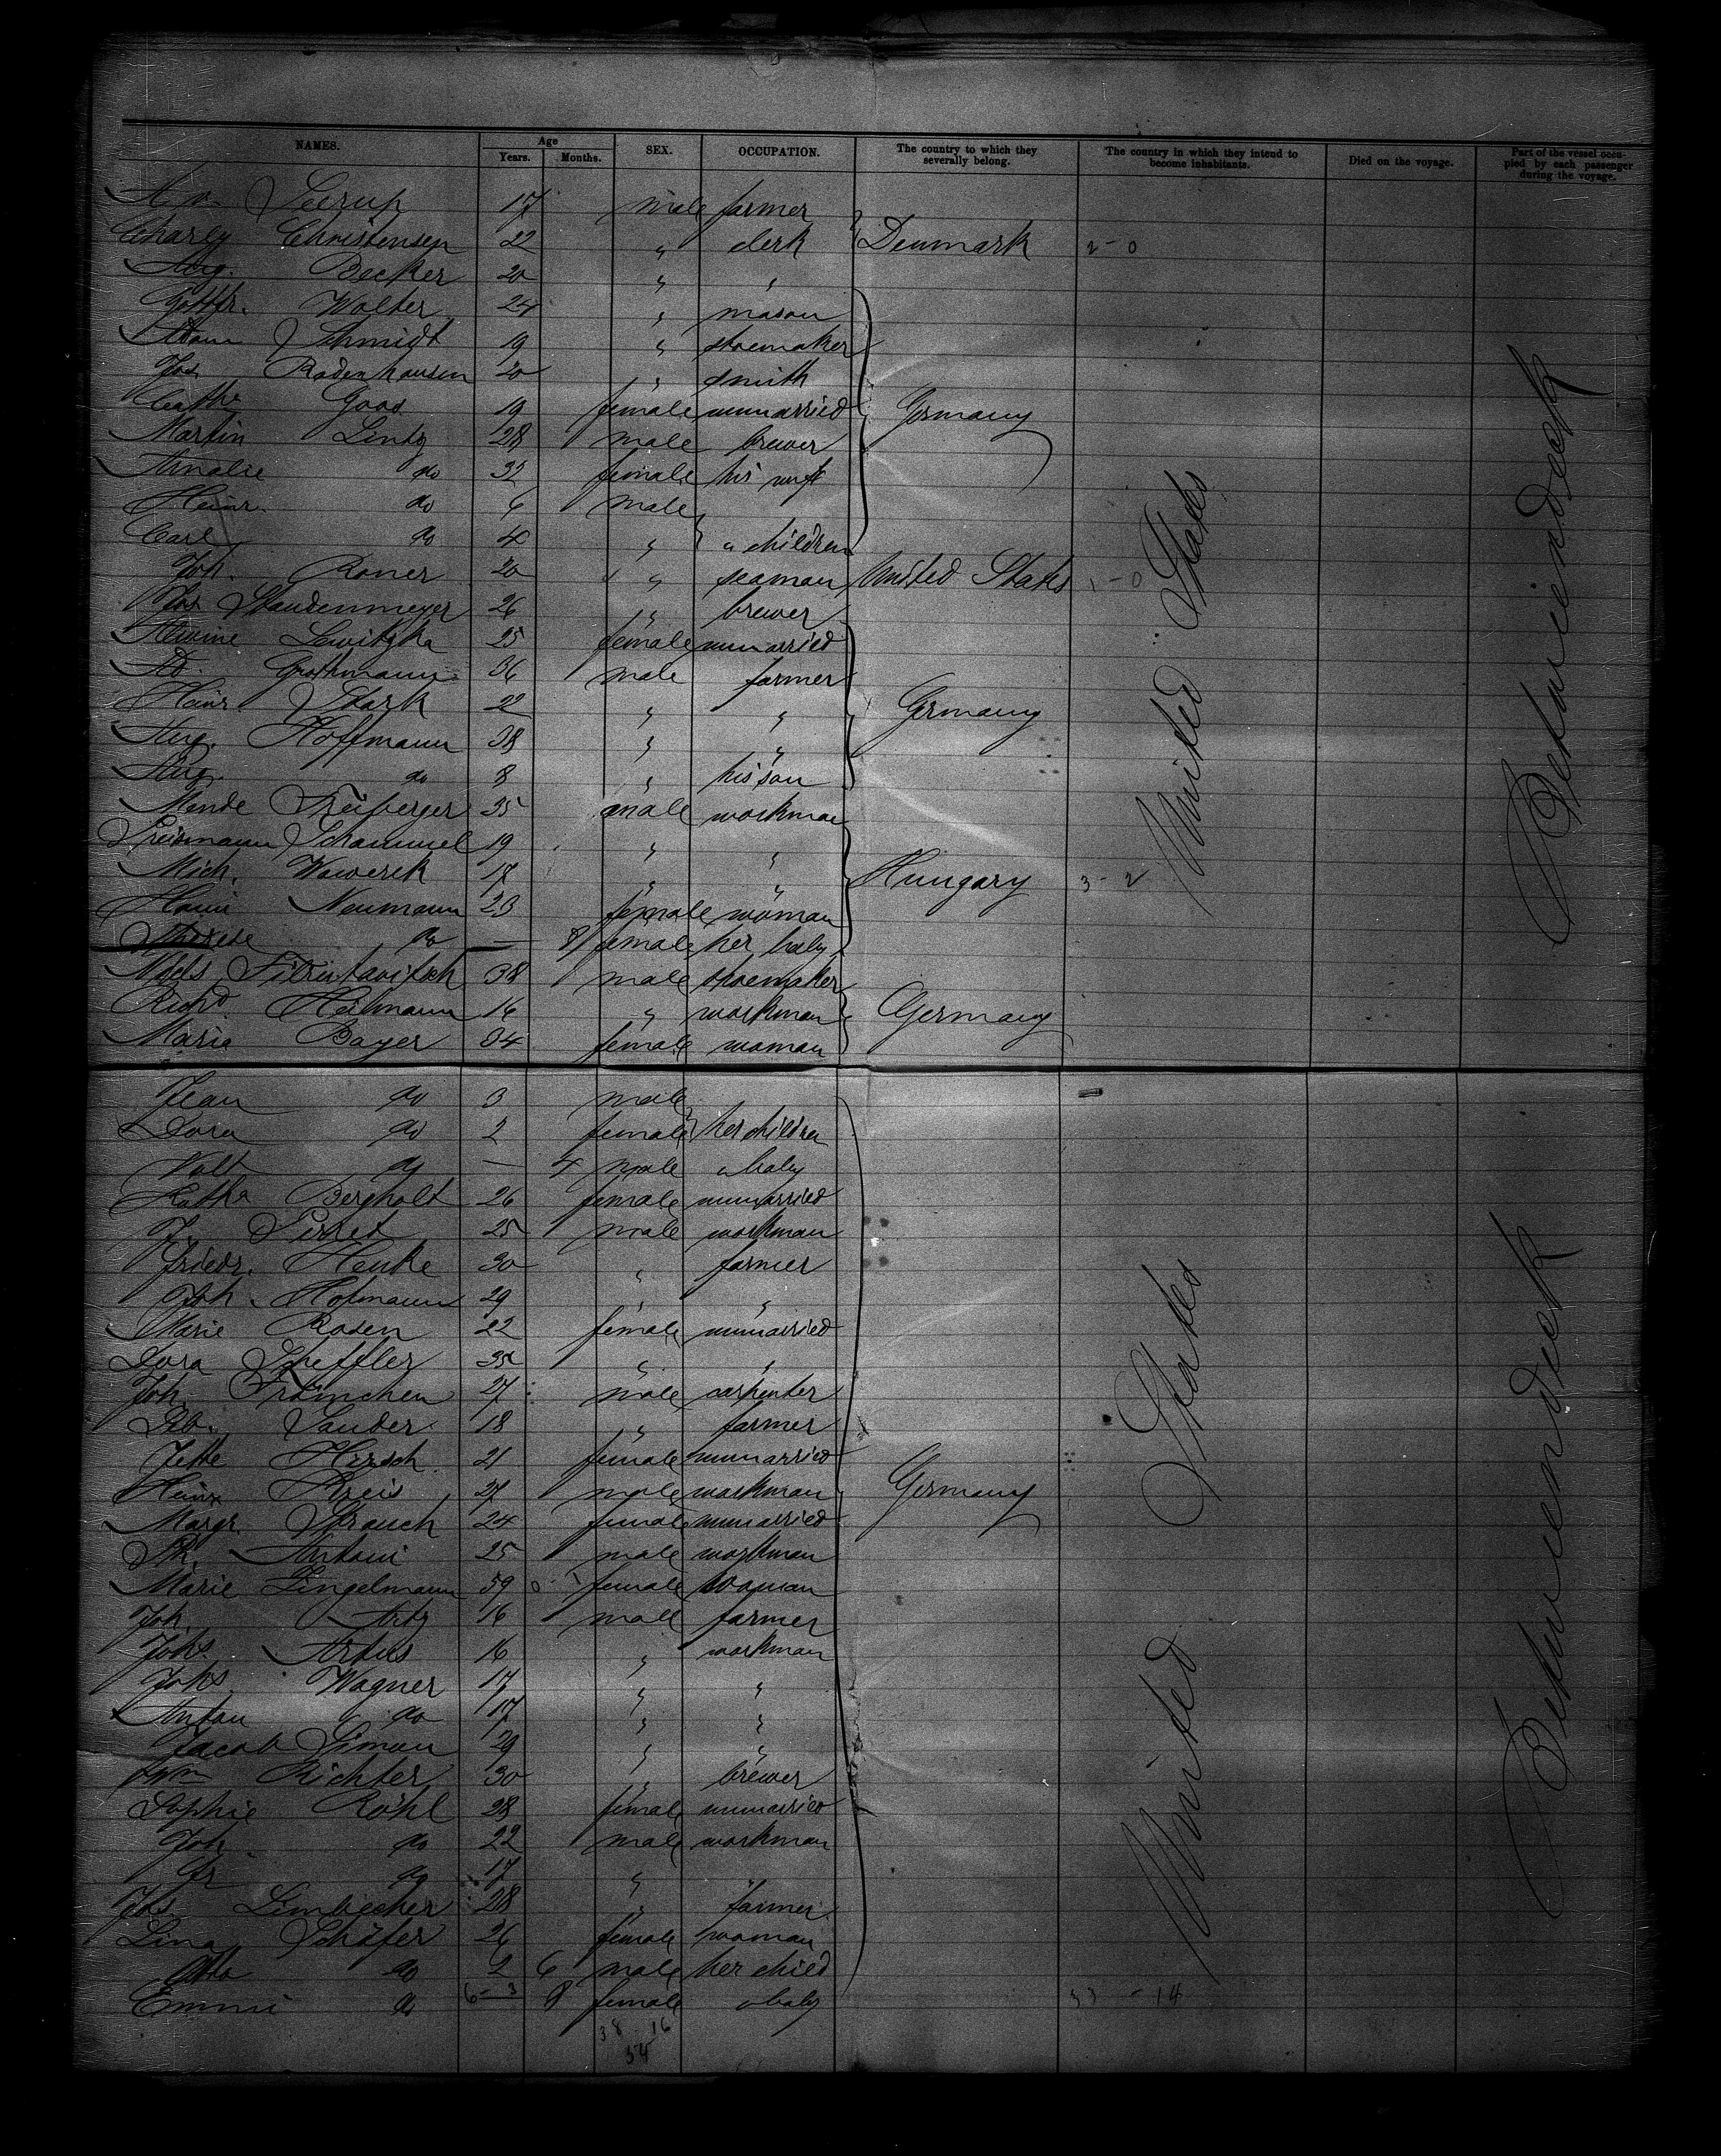 NAMES. Age Years. Months. SEX. OCCUPATION. The country to which they severally belong. The country in which they intend to become inhabitants. Died on the voyage. Part of the vessel occupied by each passenger during the voyage.
17 male farmer
Charly Christensen 22 " clerk Denmark 2-0
Aug. Becker 20 " "
Gottfr. Walter 24 " mason
Adam Schmidt 19 " shoemaker
Jos. Rodenhausen 20 " smith
Cathe Goos 19 female unmarried Germany
Martin Lintz 28 male brewer
Amalie do 32 female his wife
Heinr. do 6 male
Carl do 4 " " children
Joh. Roner 20 " seaman United States 1-0
Jos Staudenmeyer 26 " brewer
Lewitzka 25 female unmarried
Ad. Grothmann 36 male farmer
Heinr. Stark 22 " " Germany
Aug. Hoffmann 38 " "
Aug. do 8 " his son
Mende Freiberger 35 male workman
Schammel 19 " "
Mich. Wawerek 18 " " Hungary 3-2
Hani Neumann 23 female woman
Therese do — 8 female her baby
38 male shoemaker
Richd. Heilmann 16 " workman Germany
Maria Bayer 34 female woman
United States
Betweendeck
Jean do 3 male
Dora do 2 female her children
Valt do — 4 male " baby
Kathe Bergholt 26 female unmarried
J. Perret 25 male workman
Friedr. Henke 30 " farmer
Joh. Hofmann 29 " "
Marie Rosen 22 female unmarried
Dora Scheffler 35 " "
Joh. Främchen 27 male carpenter
Seb. Sander 18 " farmer
Jette Hirsch 21 female unmarried
Heinr Preis 27 male workman Germany
Margr. Strauch 24 female unmarried
Ph. Antoni 25 male workman
Marie Lingelmann 59 female woman
Joh. Artz 16 male farmer
Johs. Artus 16 " workman
Johs. Wagner 17 " "
Anton do 17 " "
Jacob Simon 29 " "
Wm Richter 30 " brewer
Sophie Röhl 28 female unmarried
Joh. do 22 male workman
Fr do 17 "
Jos. Limbecher 28 " farmer
Lina Schäfer 26 female woman
Otto do 2 6 male her child
Emmi do 8 female " baby
6-3 33-14
38-16
54
United States
Betweendeck